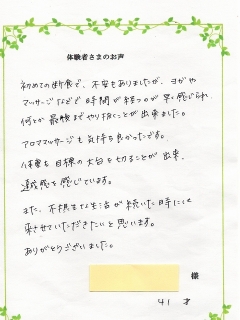 体験者さまのお声
初めての断食で、不安もありましたが、ヨガや
マッサージなどで時間が経つのが早く感じられ、
何とか最後までやり抜くことが出来ました。
アロママッサージも気持ち良かったです。
体重も目標の大台を切ることが出来、
達成感を感じています。
また、不規則な生活が続いた時に
来させていただきたいと思います。
ありがとうございました。
様
41 才